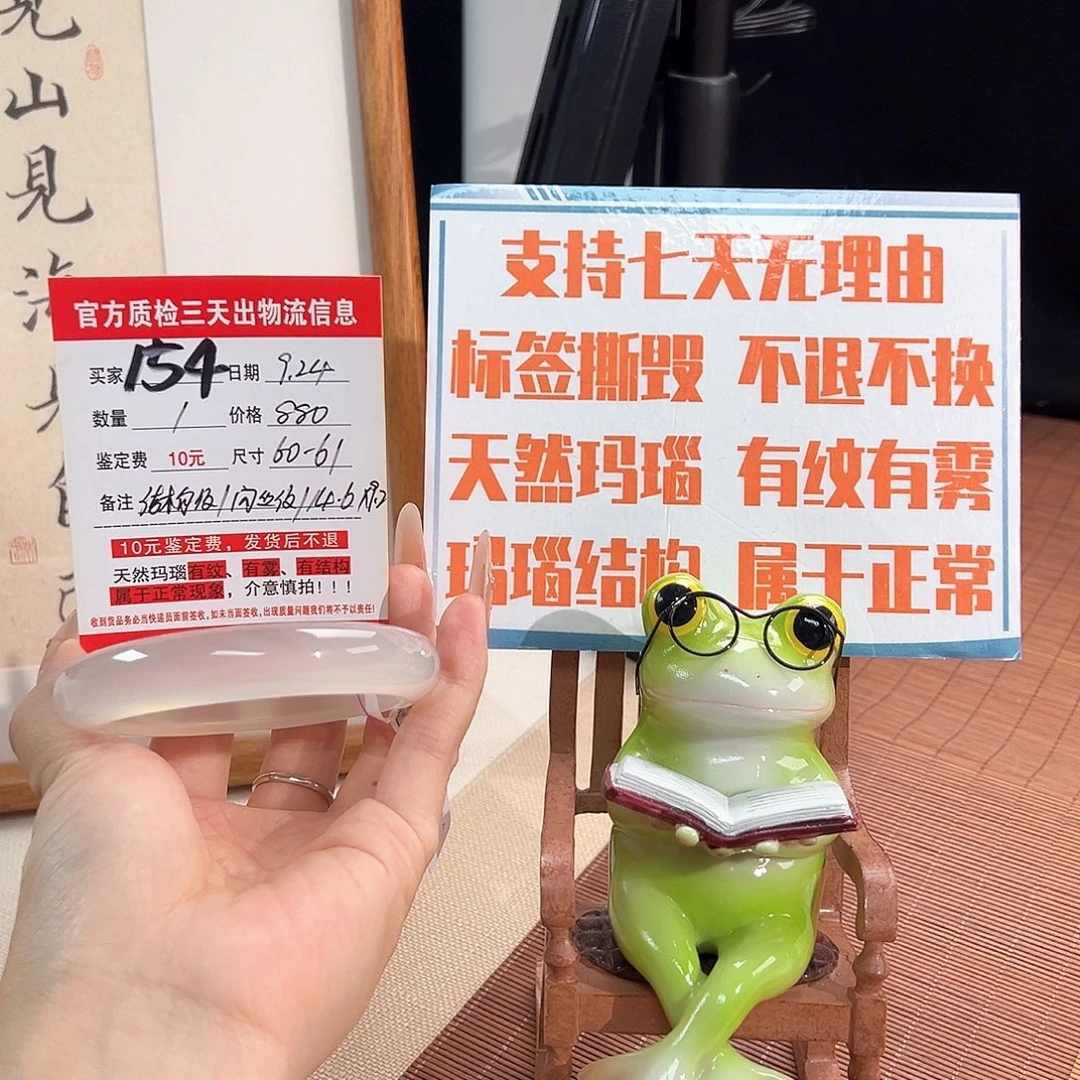 見
山
見
海
官方质检三天出物流信息
买家 154 日期 9.24
数量 1 价格 880
鉴定费 10元 尺寸 60-61
备注
10元鉴定费，发货后不退
天然玛瑙有纹、有雾、有结构
属于正常现象，介意慎拍！！！
收到货品务必当快递员面前签收，如未当面签收，出现质量问题我们将不予以责任！
支持七天无理由
标签撕毁 不退不换
天然玛瑙 有纹有雾
玛瑙结构 属于正常